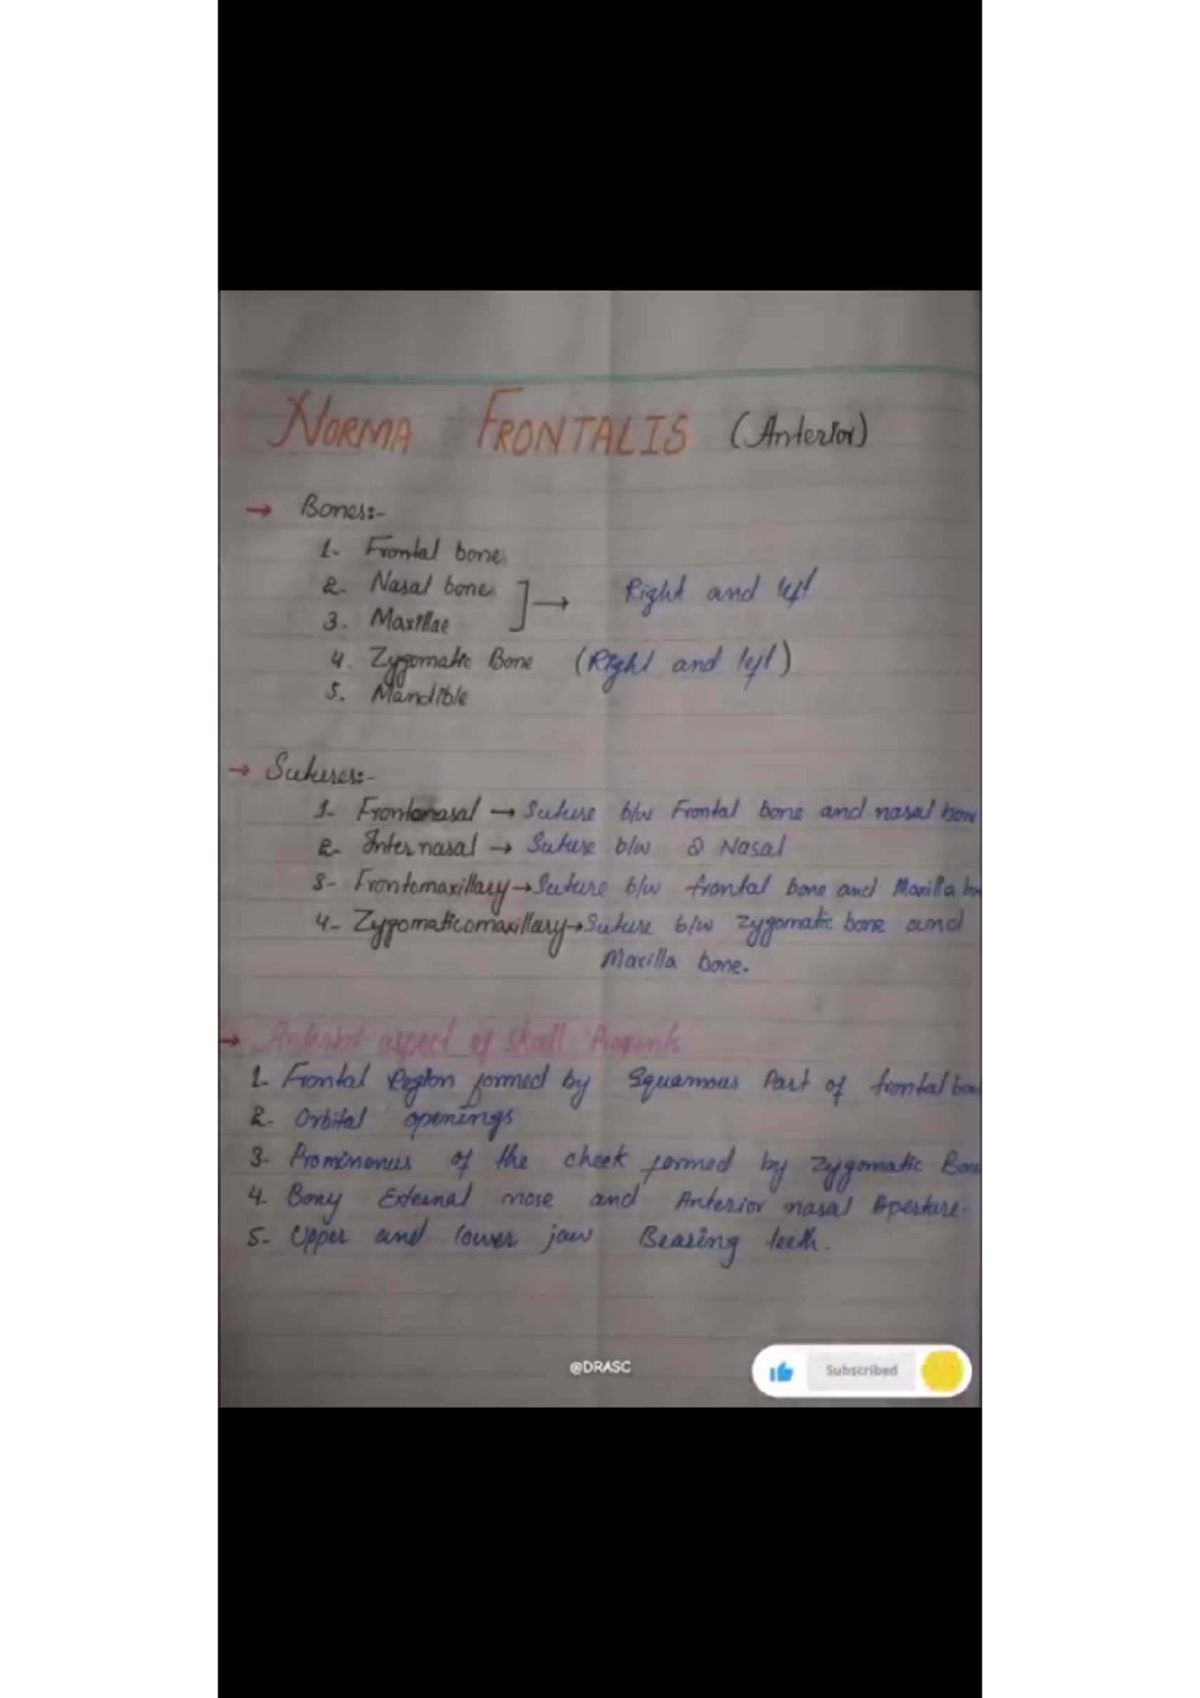 NORMA FRONTALIS (Anterior)
→ Bones:-
1- Frontal bone
2- Nasal bone ] → Right and left
3- Maxillae
4. Zygomatic Bone (Right and left)
5. Mandible
→ Sutures:-
1- Frontonasal → Suture b/w Frontal bone and nasal bone
2- Internasal → Suture b/w 2 Nasal
3- Frontomaxillary → Suture b/w frontal bone and Maxilla bo
4- Zygomaticomaxillary → Suture b/w Zygomatic bone and
Maxilla bone.
→ Anterior aspect of skull
1- Frontal Region formed by Squamous Part of frontal bon
2- Orbital openings
3- of the cheek formed by Zygomatic Bone
4. Bony External nose and Anterior nasal Aperture.
5- Upper and lower jaw Bearing teeth.
@DRASC
Subscribed